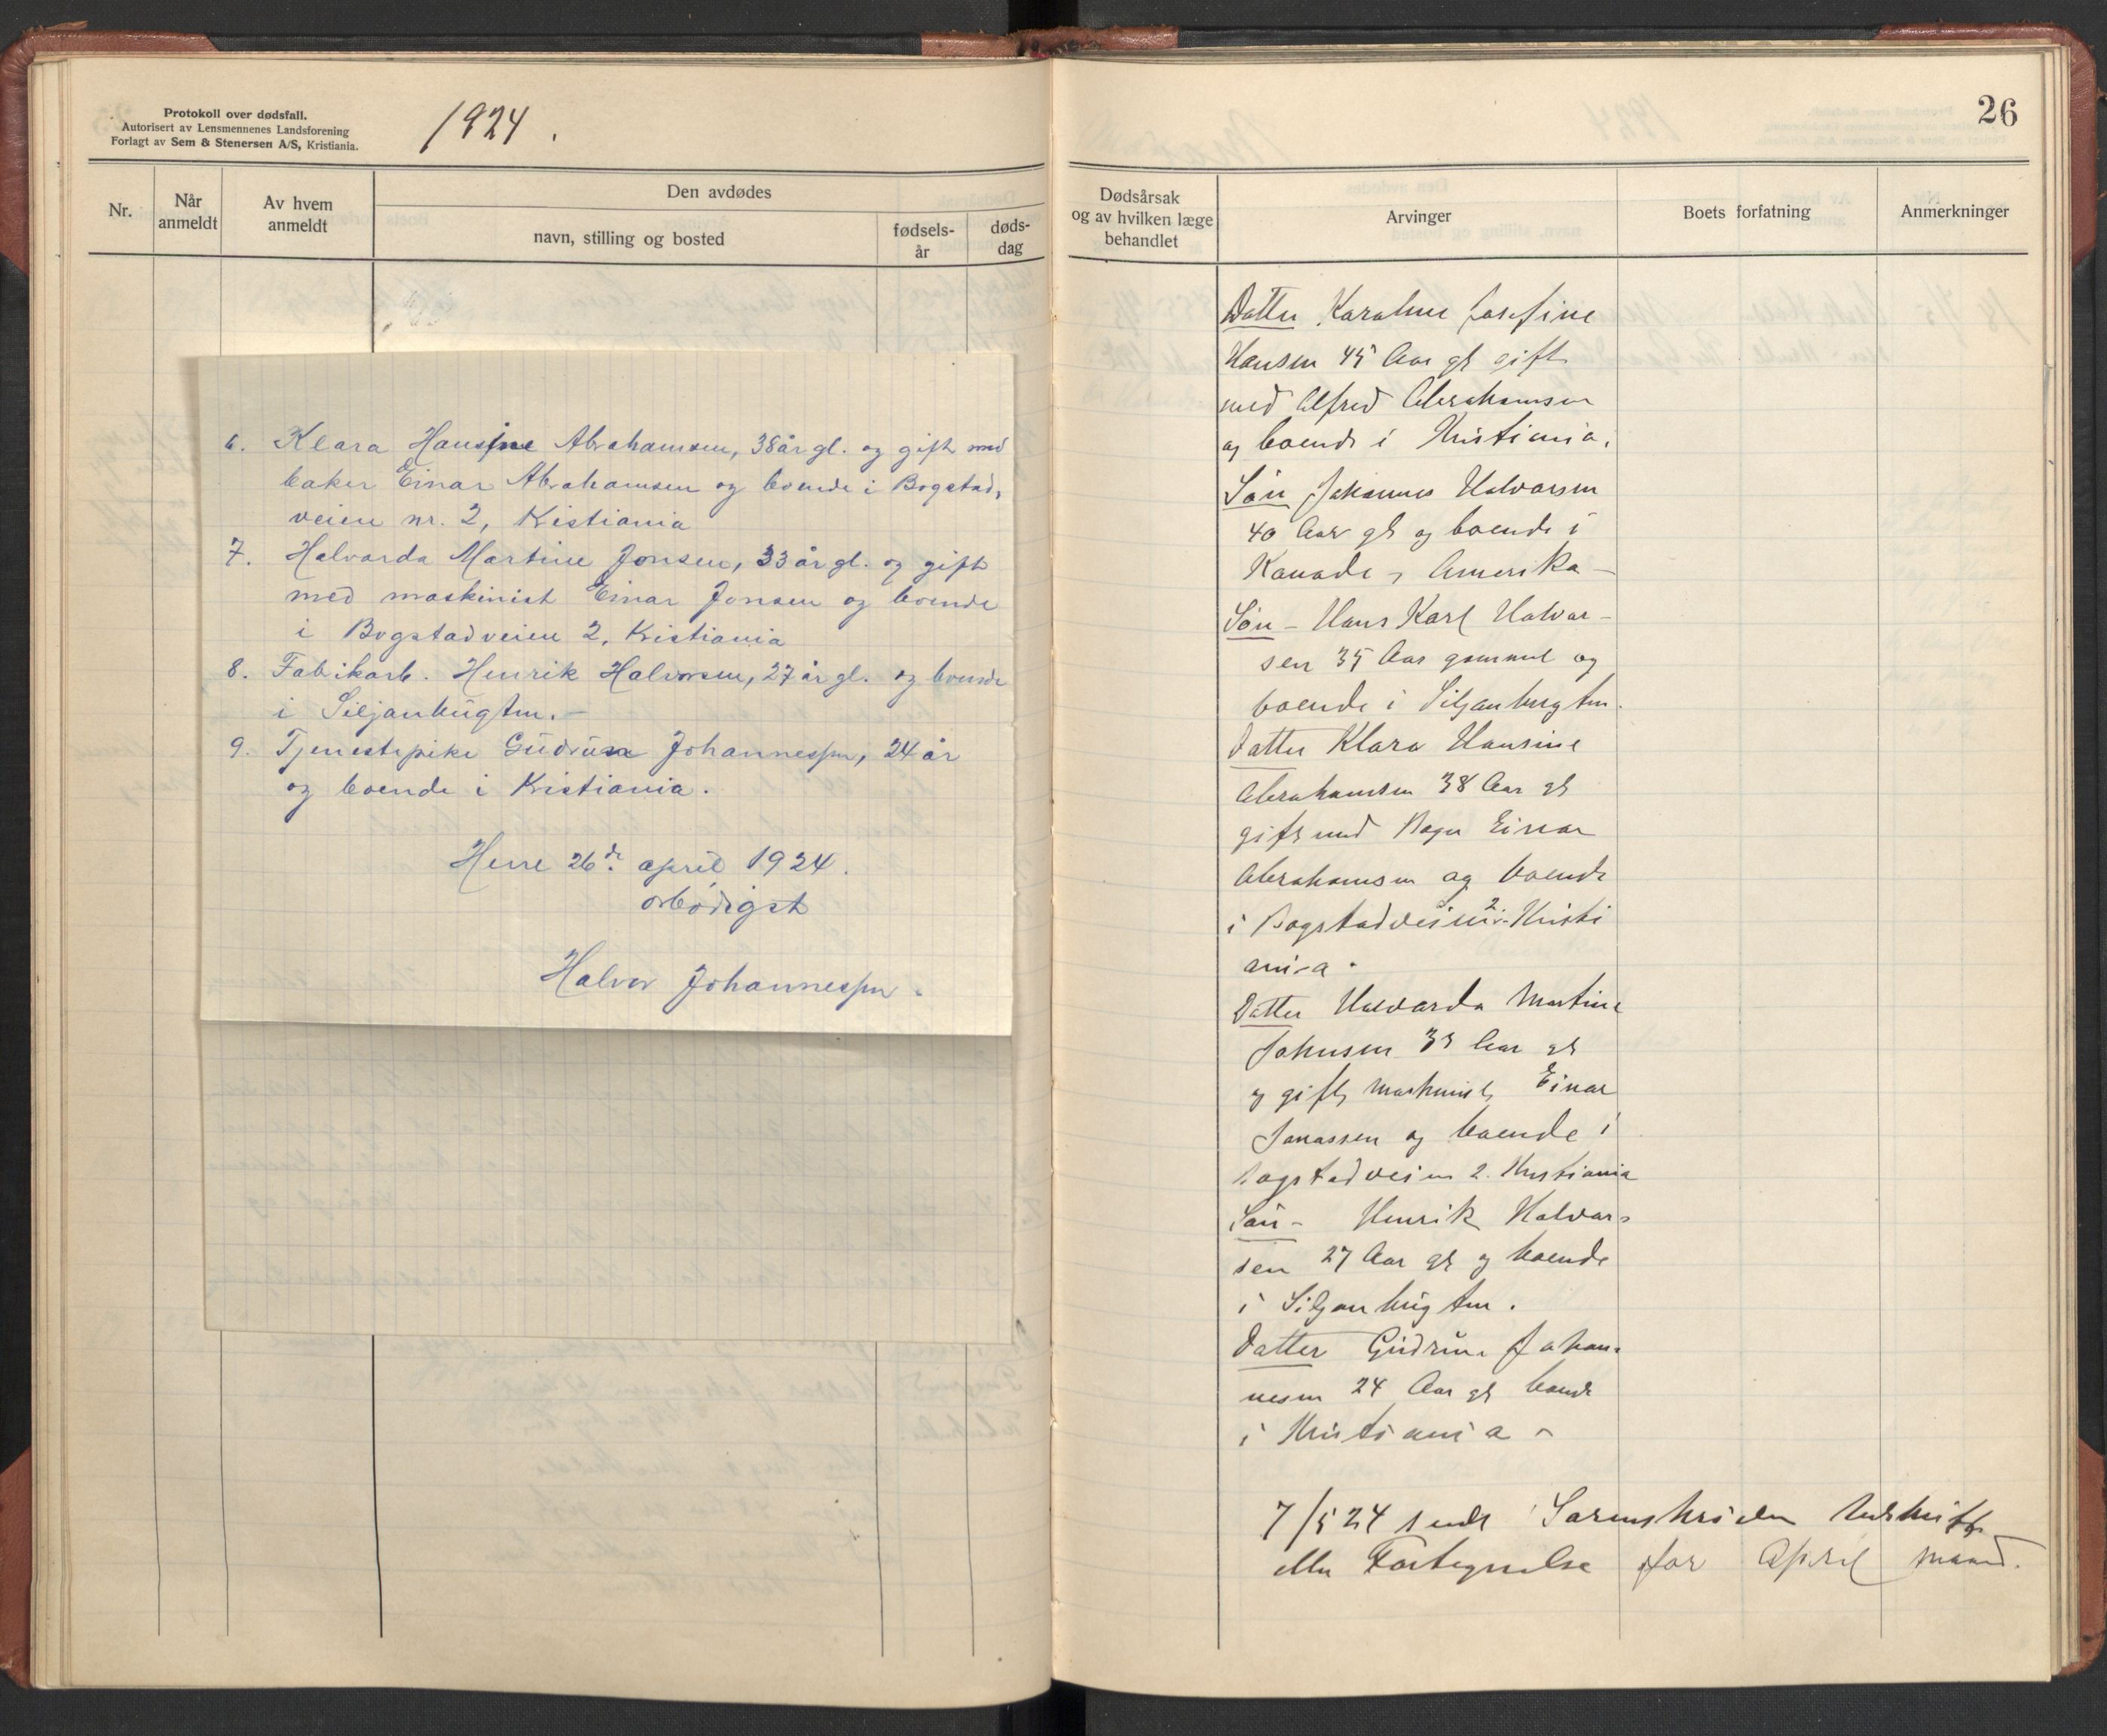 Protokoll over dødsfall.
Autorisert av Lensmennenes Landsforening
Forlagt av Sem & Stenersen A/S, Kristiania.
1924.
Nr.
Når anmeldt
Av hvem anmeldt
Den avdødes
navn, stilling og bosted
fødsels-år
døds-dag
6. Klara Hansine Abrahamsen, 38 år gl. og gift med
baker Einar Abrahamsen og boende i Bogstad-
veien nr. 2, Kristiania
7. Halvarda Martine Jonsen, 33 år gl. og gift
med maskinist Einar Jonsen og boende
i Bogstadveien 2, Kristiania
8. Fabikarb. Henrik Halvorsen, 27 år gl. og boende
i Siljanbugten.-
9. Tjenestepike Gudrun Johannessen, 24 år
og boende i Kristiania.
Herre 26de april 1924.
ærbødigst
Halvor Johannessen.
26
Dødsårsak
og av hvilken læge
behandlet
Arvinger
Boets forfatning
Anmerkninger
Datter Karoline Josefine
Hansen 45 Aar gl gift
med Alfred Abrahamsen
og boende i Kristiania.
Søn Johannes Halvorsen
40 Aar gl og boende i
Kanada, Amerika -
Søn - Hans Karl Halvor-
sen 35 Aar gammel og
boende i Siljanbugten.
Datter Klara Hansine
Abrahamsen 38 Aar gl
gift med Bager Einar
Abrahamsen og boende
i Bogstadveien 2 Kristi
ania.
Datter Halvarda Martine
Johnsen 33 Aar gl
og gift maskinist Einar
Jonassen og boende i
Bogstadveien 2. Kristiania
Søn - Henrik Halvor-
sen 27 Aar gl og boende
i Siljanbugten.
Datter Gudrun Johan-
nesen 24 Aar gl boende
i Kristiania -
7/5 24 sendt Sorenskriveren Udskrift
eller Fortegnelse for April maaned.